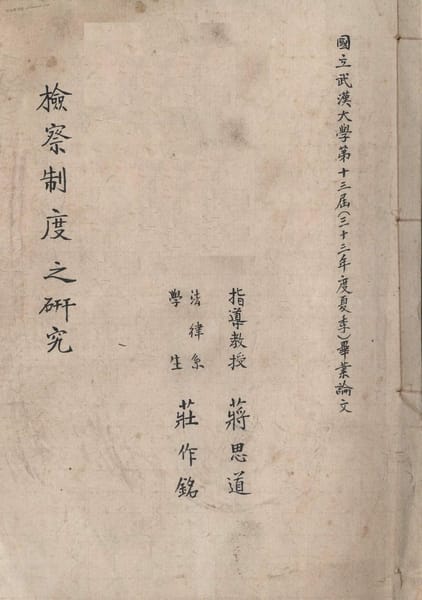 國立武漢大學第十三屆(三十三年度夏季)畢業論文
指導教授 蔣思道
法律系
學生 莊作銘
檢察制度之研究